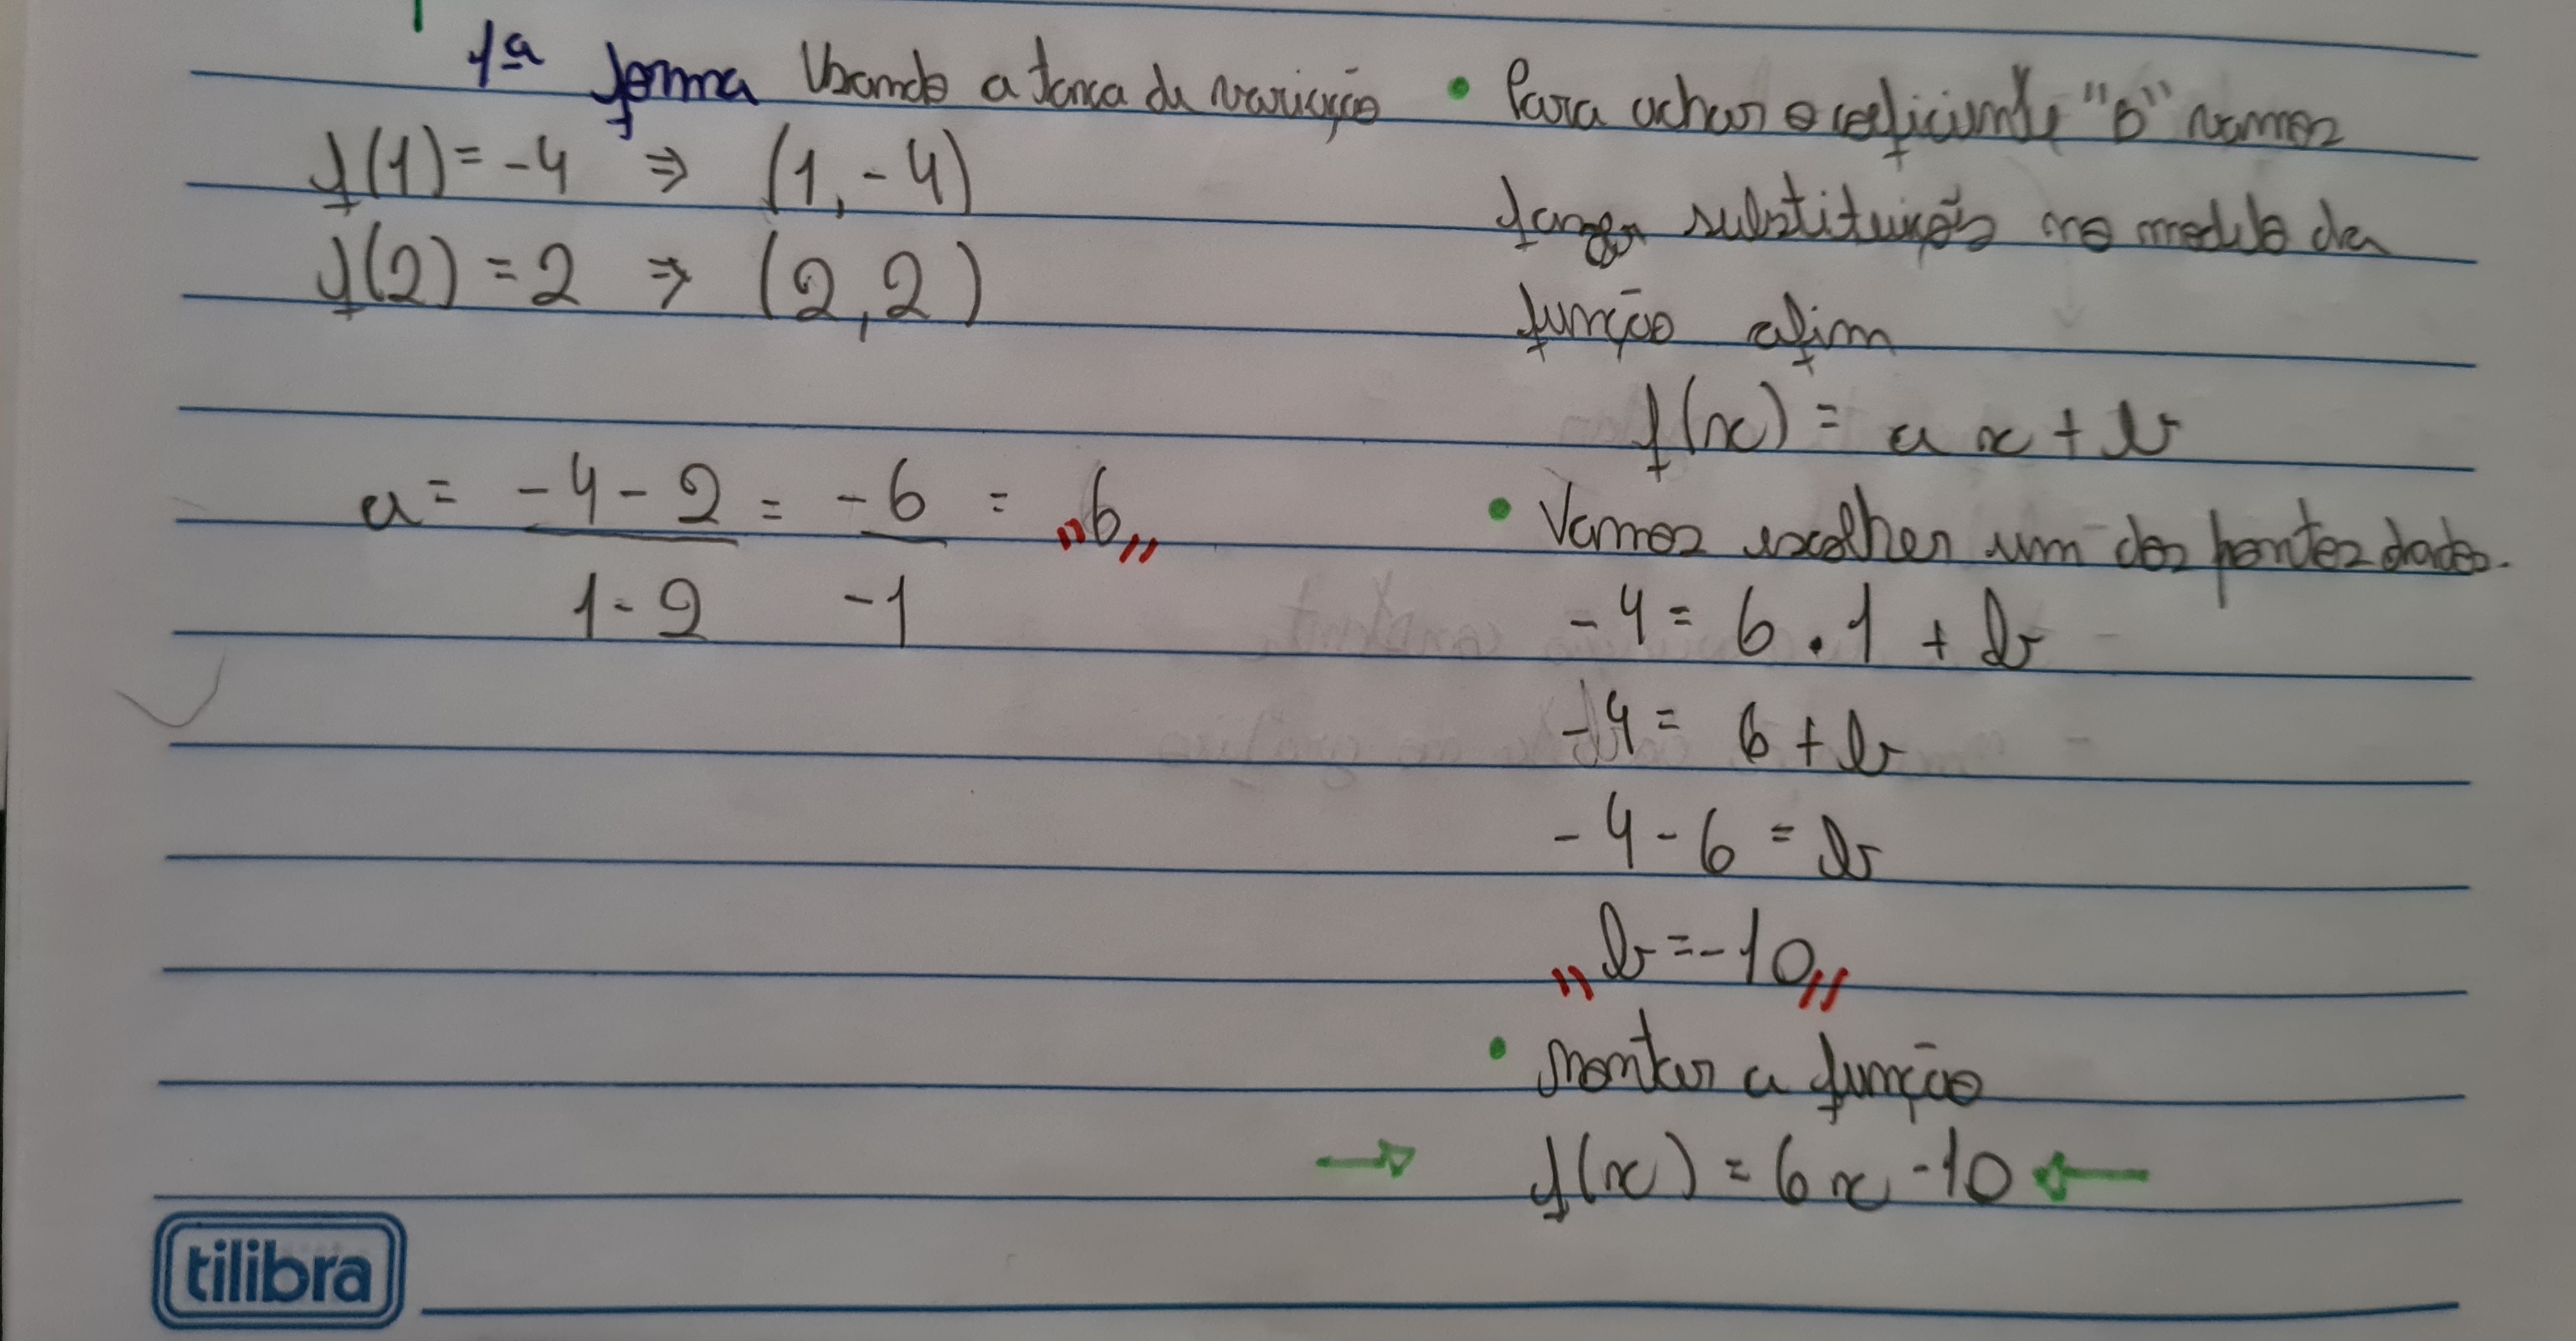 1ª forma Usando a taxa de variação
f(1) = -4 ⇒ (1, -4)
f(2) = 2 ⇒ (2, 2)
a = -4 - 2 = -6 = "6"
1 - 2 -1
• Para achar o coeficiente "b" vamos
fazer substituição no modelo da
função afim
f(x) = ax + b
• Vamos escolher um dos pontos dados.
-4 = 6 . 1 + b
-4 = 6 + b
-4 - 6 = b
"b = -10"
• Montar a função
→ f(x) = 6x - 10 ←
tilibra